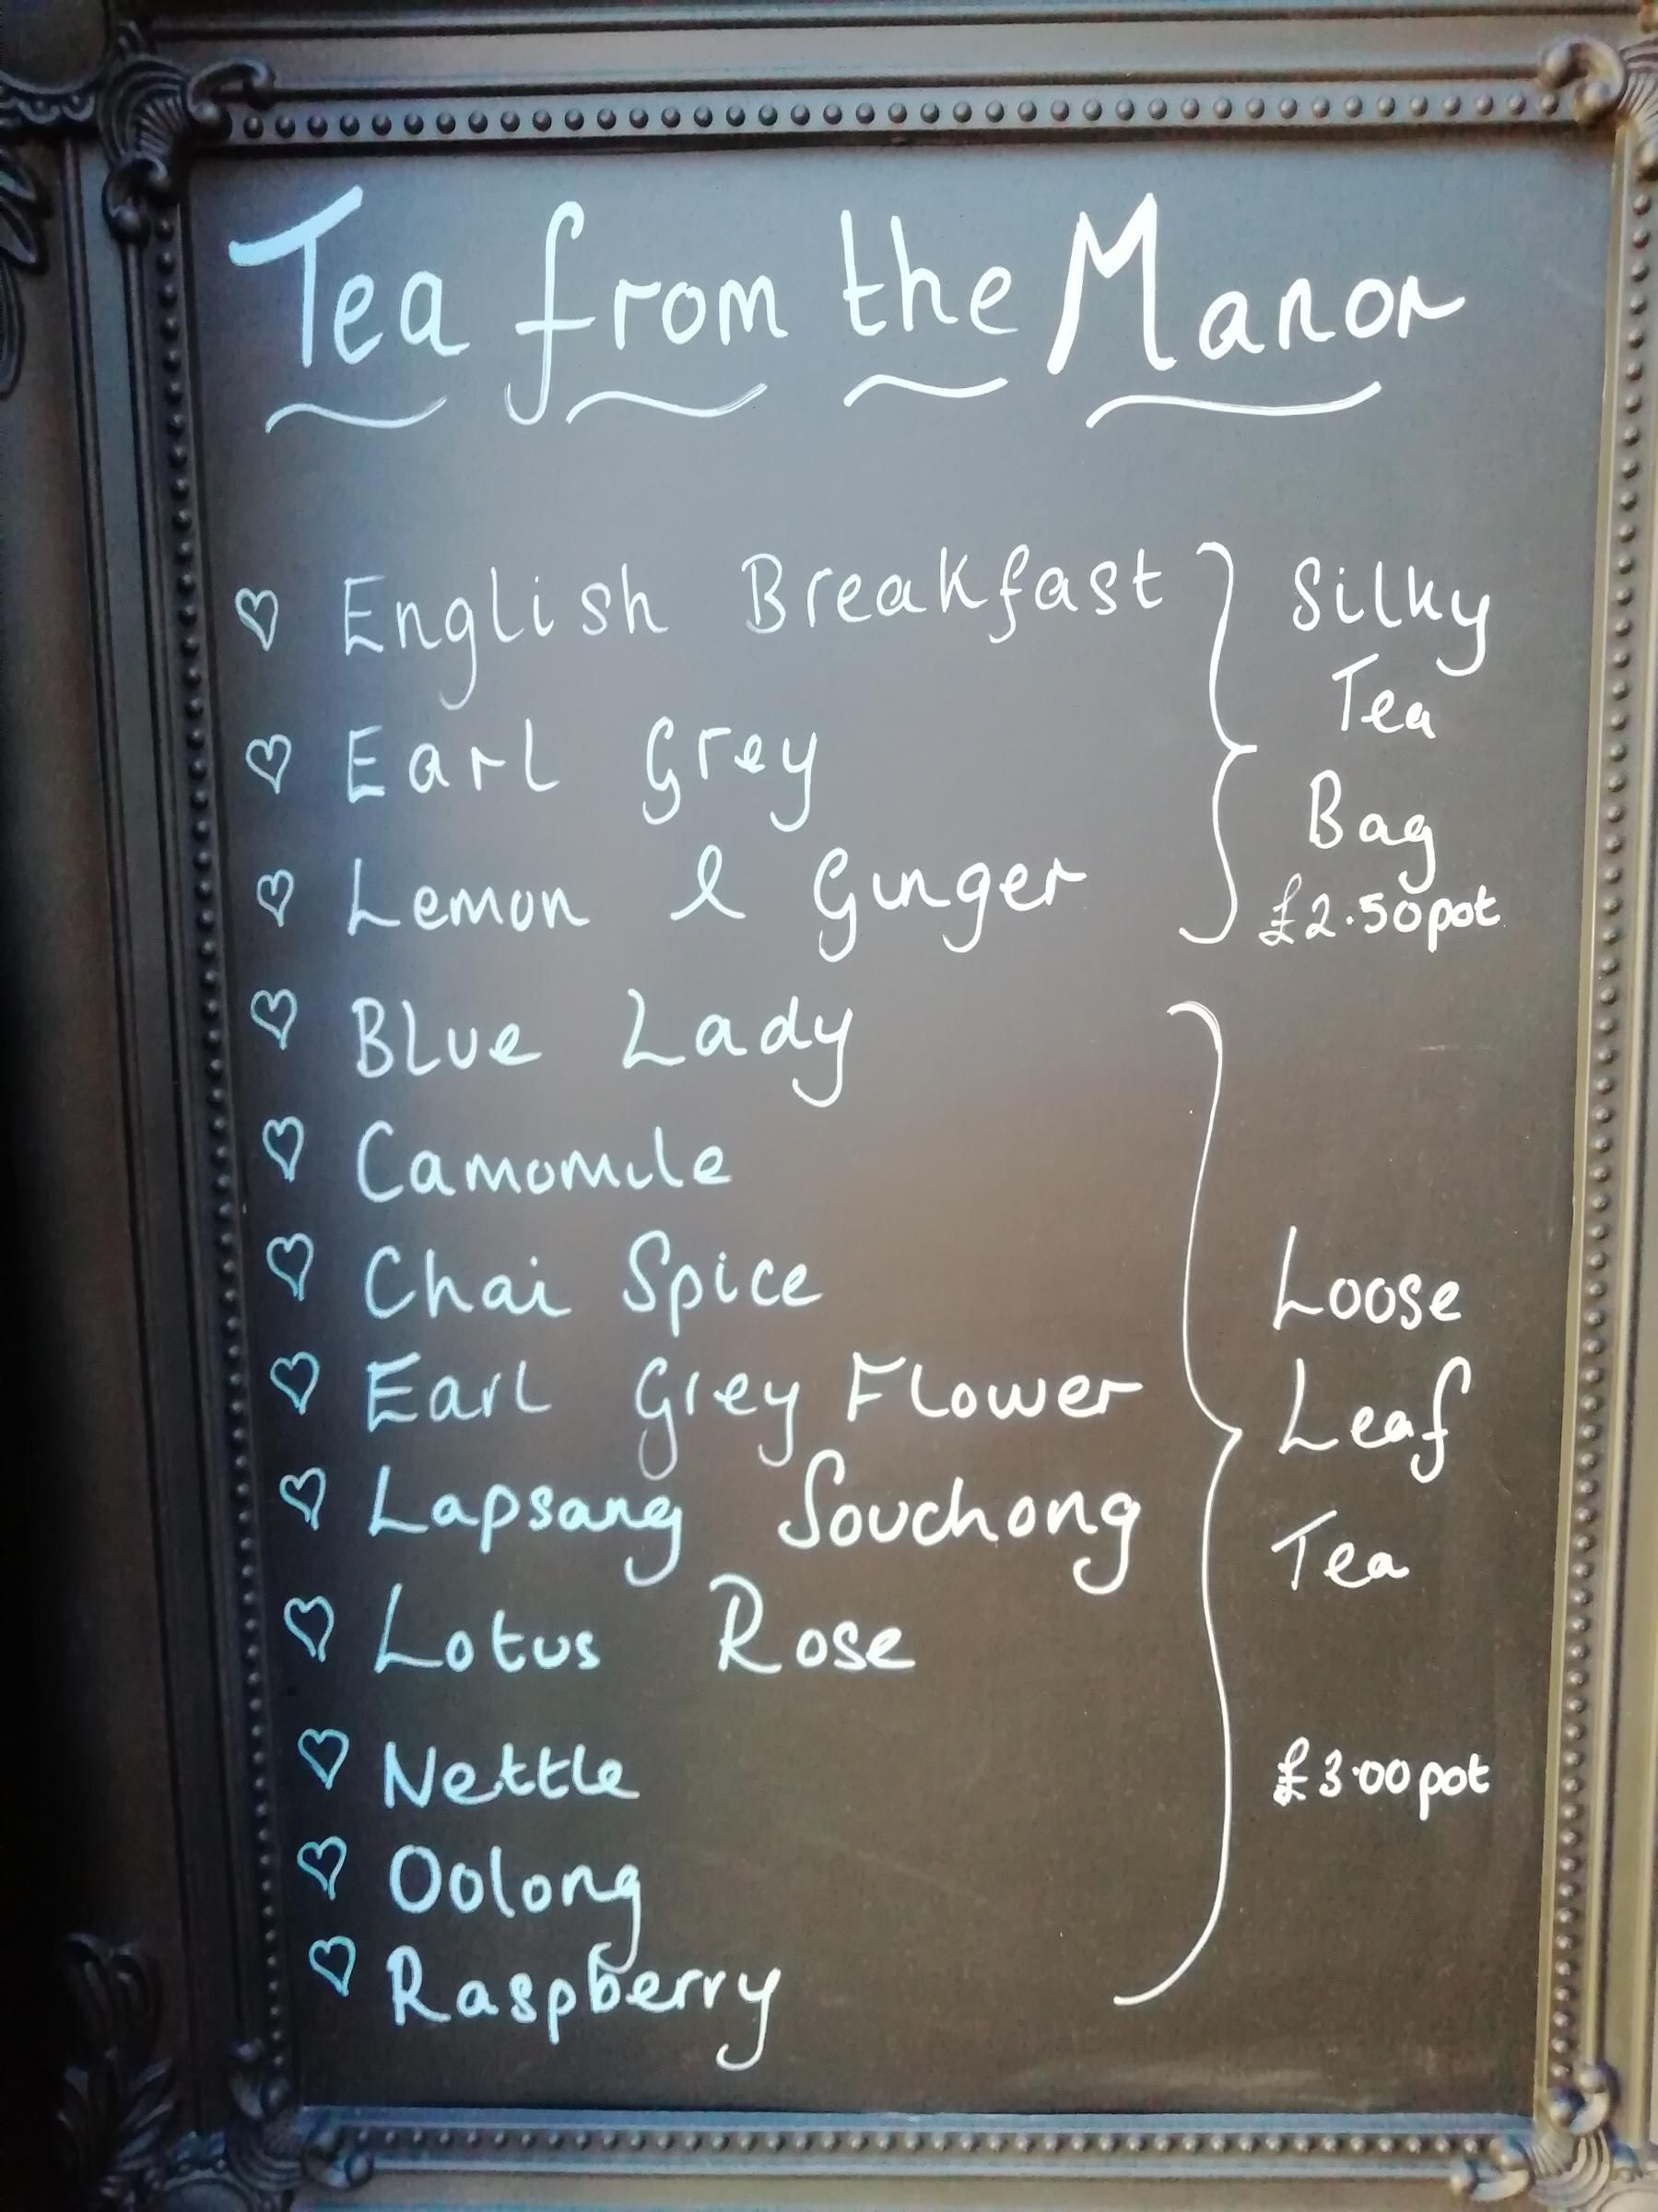 Tea from the Manor
♡ English Breakfast
♡ Earl Grey
♡ Lemon & Ginger
Silky
Tea
Bag
£2.50pot
♡ Blue Lady
♡ Camomile
♡ Chai Spice
♡ Earl Grey Flower
♡ Lapsang Souchong
♡ Lotus Rose
♡ Nettle
♡ Oolong
♡ Raspberry
Loose
Leaf
Tea
£3.00pot